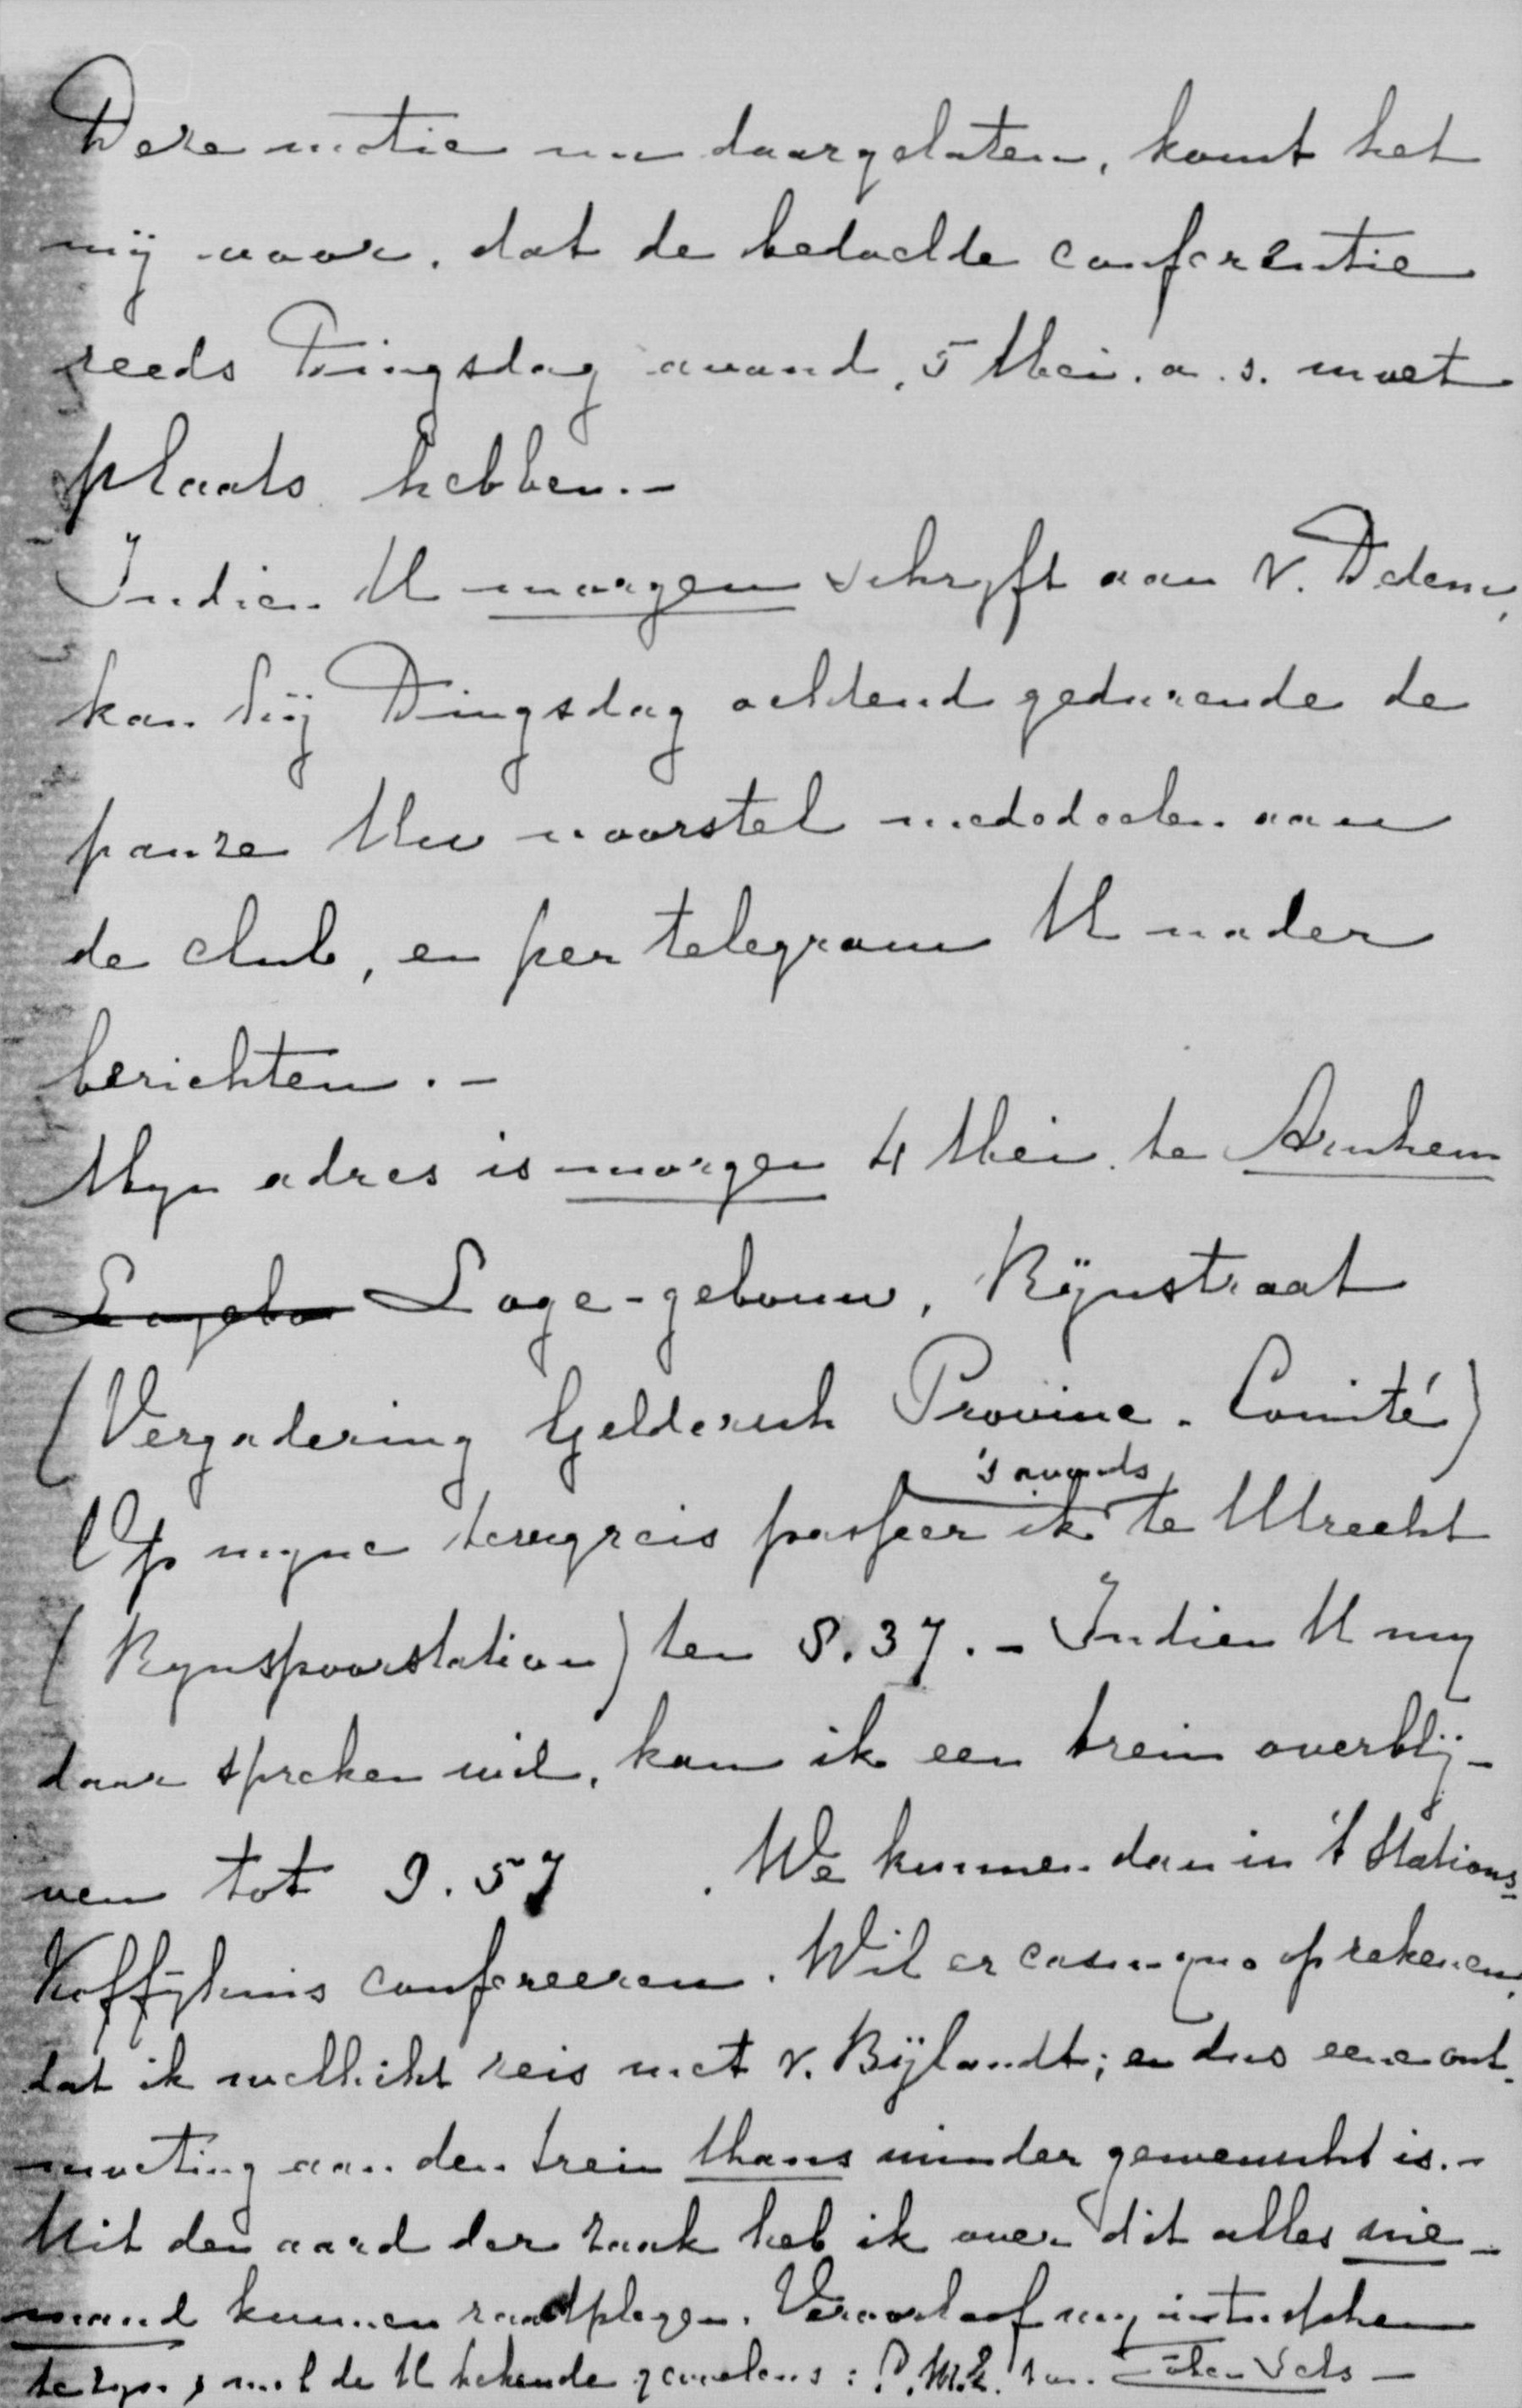 Deze motie nu daargelaten, komt het
mij voor, dat de bedoelde conferentie
reeds Dingsdag avond, 5 Mei. a. s. moet
plaats hebben. -
Indien U morgen schryft aan v. Dedem,
kan hij Dingsdag ochtend gedurende de
pauze Uw voorstel mededeelen aan
de club, en per telegram U nader
berichten. -
Myn adres is morgen 4 Mei. te Arnhem
Logebo Loge-gebouw, Rijnstraat
(Vergadering Geldersch Provinc. Comité)
's avonds
Op myne terugreis passeer ik te Utrecht
(Rynspoorstation) ten 8.37. - Indien U my
daar spreken wil, kan ik een trein overblij-
ven tot 9.57. We kunnen dan in 't Stations-
Koffijhuis confereeren. Wil er casu-quo op rekenen,
dat ik wellicht reis met v. Bijlandt; en dus eene ont-
moeting aan den trein thans minder gewenscht is. -
Uit den aard der zaak heb ik over dit alles nie-
mand kunnen raadplegen. Veroorloof my intusschen
te zyn, met de U bekende gevoelens: